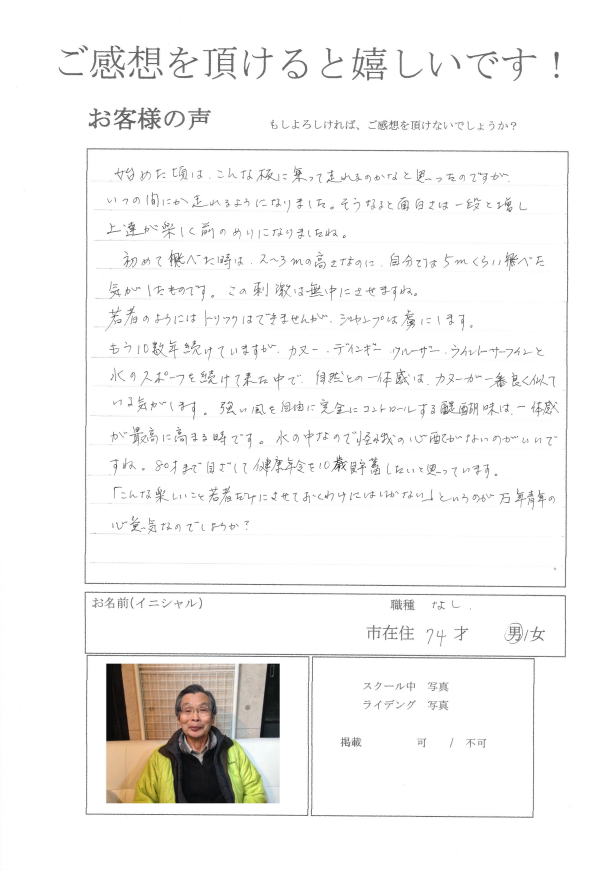 ご感想を頂けると嬉しいです！
お客様の声
もしよろしければ、ご感想を頂けないでしょうか？
始めた頃は、こんな板に乗って走れるのかなと思ったのですが、
いつの間にか走れるようになりました。そうなると面白さは一段と増し
上達が楽しく前のめりになりましたね。
初めて飛べた時は、2〜3mの高さなのに、自分では5mくらい飛べた
気がしたものです。この刺激は夢中にさせますね。
若者のようにはトリックはできませんが、ジャンプは虜にします。
もう10数年続けていますが、カヌー・デインギー・クルーザー・ウインドサーフィンと
水のスポーツを続けて来た中で、自然との一体感は、カヌーが一番良く似て
いる気がします。強い風を自由に完全にコントロールする醍醐味は、一体感
が最高に高まる時です。水の中なので怪我の心配がないのがいいで
すね。80才まで目ざして健康年令を10歳貯蓄したいと思っています。
「こんな楽しいこと若者だけにさせておくわけにはいかない」というのが万年青年の
心意気なのでしょうか？
お名前(イニシャル)
職種 なし.
市在住 74才 男/女
スクール中 写真
ライデング 写真
掲載 可 / 不可